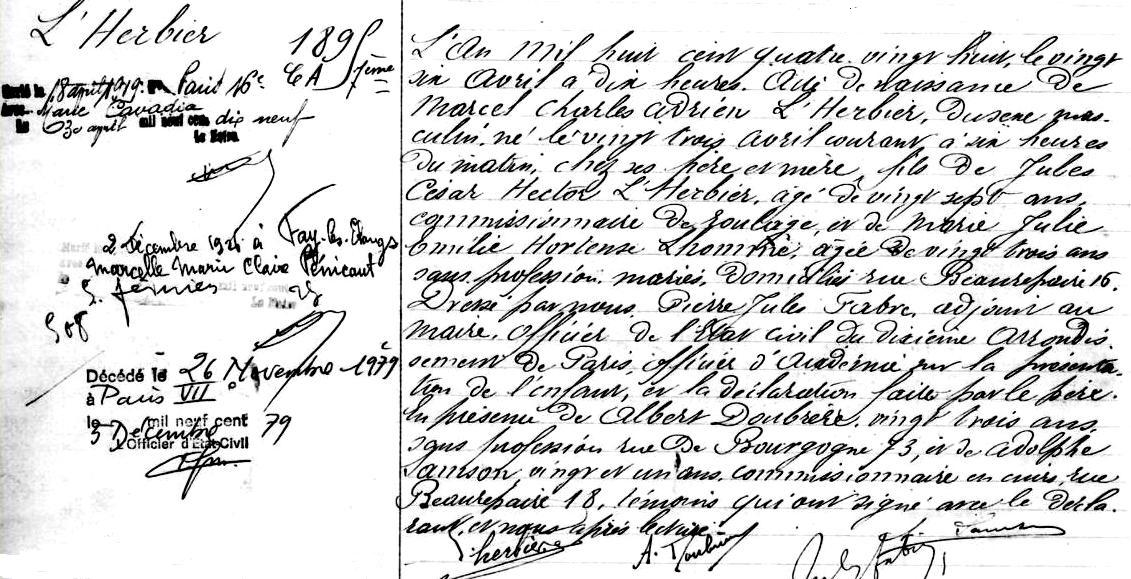 L'Herbier
1895
CA 7ème
Marié le 18 avril 1919 à Paris 16e
Avec Marie Cavadia
Le 30 avril mil neuf cent dix neuf
Le Maire
2 Décembre 1925 à Fay-les-Etangs
Marcelle Marie Claire Pénicaut
5 Février 25
508
Décédé le 26 Novembre 1979
à Paris VIIe
le mil neuf cent 79
3 Décembre
L'Officier d'Etat Civil
L'An mil huit cent quatre vingt huit, le vingt
six Avril à dix heures. Acte de naissance de
Marcel Charles Adrien L'Herbier, du sexe mas-
culin, né le vingt trois Avril courant à six heures
du matin, chez ses père et mère, fils de Jules
César Hector L'Herbier, âgé de vingt sept ans,
commissionnaire de roulage, et de Marie Julie
Emilie Hortense Lhomme, agée de vingt trois ans
sans profession mariés, domiciliés rue Beaurepaire 16.
Dressé par nous, Pierre Jules Fabre, adjoint au
Maire, officier de l'Etat civil du dixième Arrondis-
sement de Paris, officier d'Académie sur la présenta-
tion de l'enfant, et la déclaration faite par le père.
En présence de Albert Doubrere, vingt trois ans,
sans profession rue de Bourgogne 73, et de Adolphe
Samson, vingt et un ans, commissionnaire en cuirs, rue
Beaurepaire 18, témoins qui ont signé avec le décla-
rant, et nous après lecture.